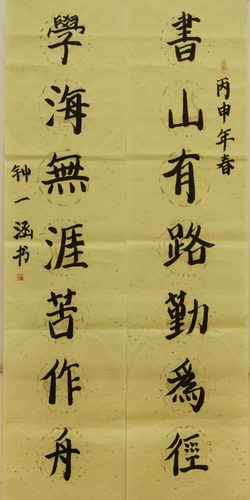 丙申年春
書山有路勤為徑
學海無涯苦作舟
钟一涵书